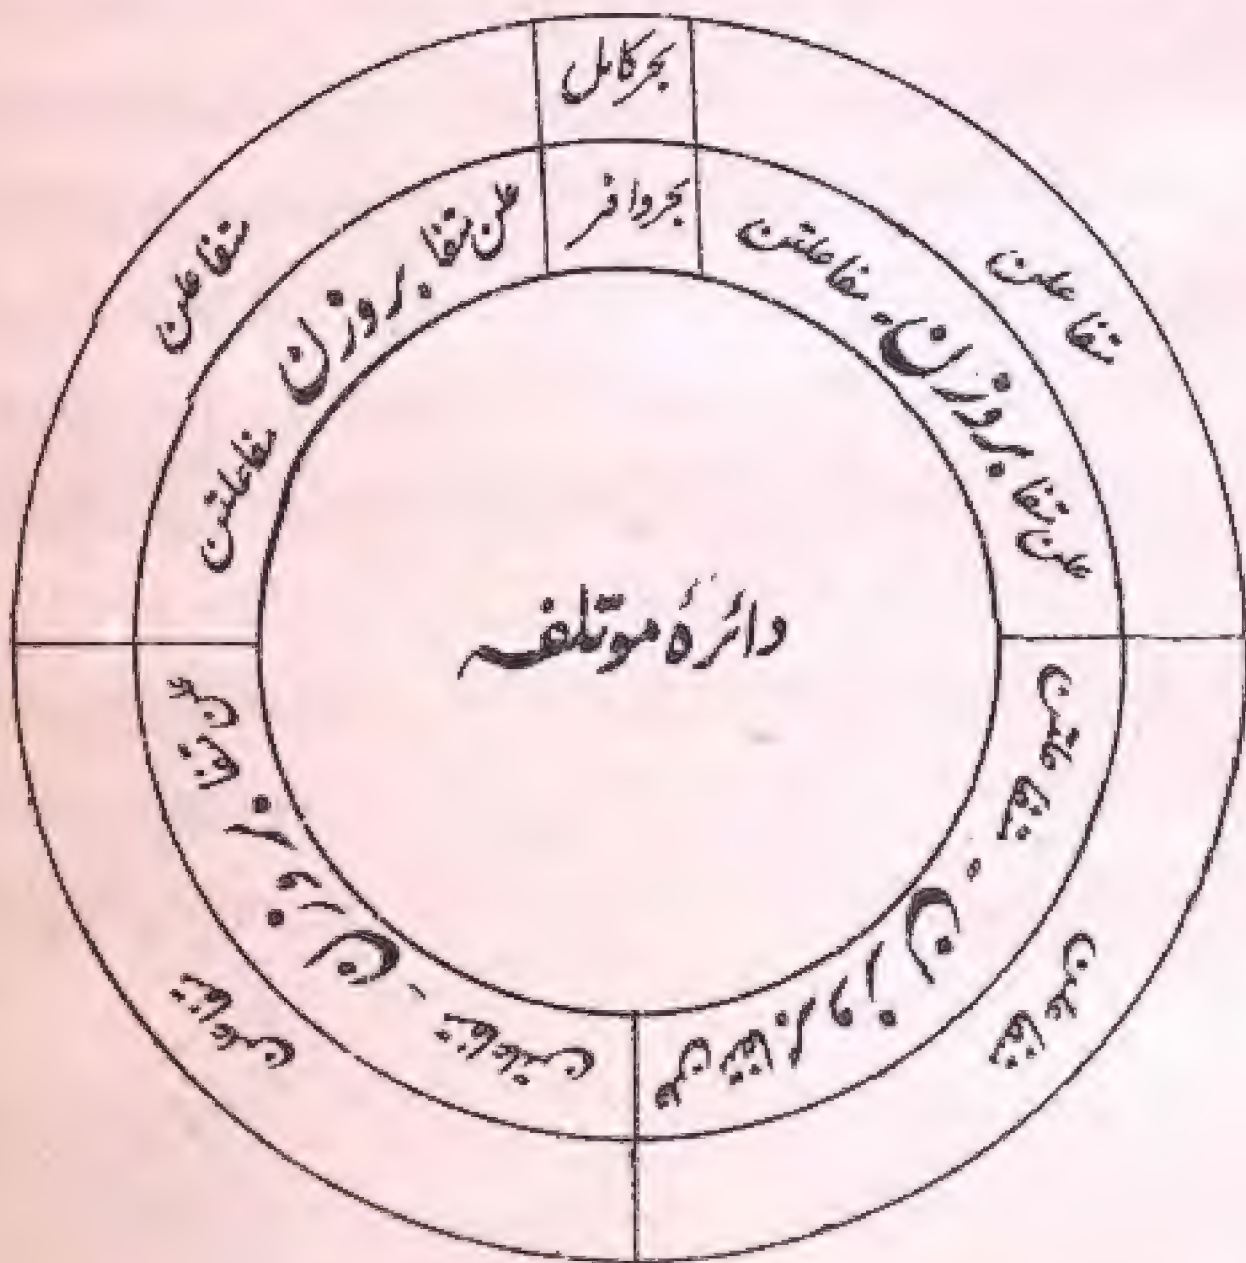 بحر کامل
بحر وافر
متفاعلن
علن متفا بروزن۔ مفاعلتن
متفاعلن
علن متفا بروزن۔ مفاعلتن
متفاعلن
علن متفا بروزن۔ مفاعلتن
متفاعلن
علن متفا بروزن مفاعلتن
دائرۂ موتلفہ